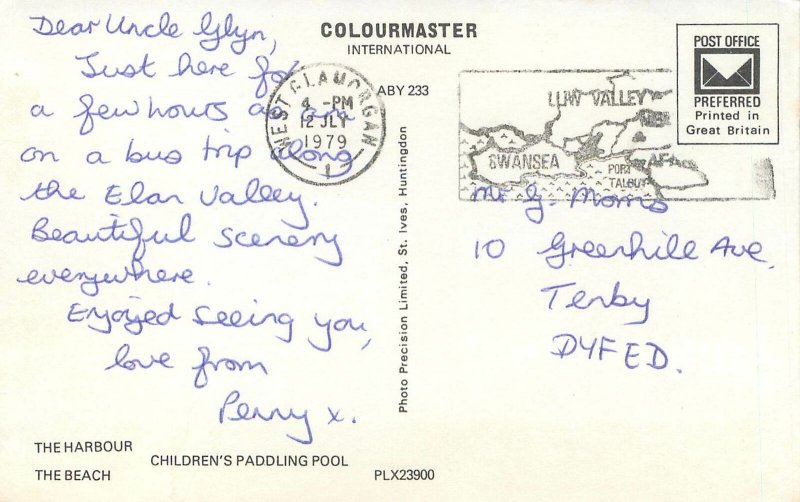 Dear Uncle Glyn,
Just here for
a few hours as am
on a bus trip along
the Elan Valley.
Beautiful scenery
everywhere.
Enjoyed seeing you,
love from
Penny x.
THE HARBOUR
THE BEACH
CHILDREN'S PADDLING POOL
PLX23900
COLOURMASTER
INTERNATIONAL
ABY 233
WEST GLAMORGAN
4 -PM
12 JLY
1979
1
Photo Precision Limited, St. Ives, Huntingdon
SWANSEA
VALLEY
PORT
TALBOT
POST OFFICE
PREFERRED
Printed in
Great Britain
Mr G. Morris
10 Greenhill Ave,
Tenby
DYFED.